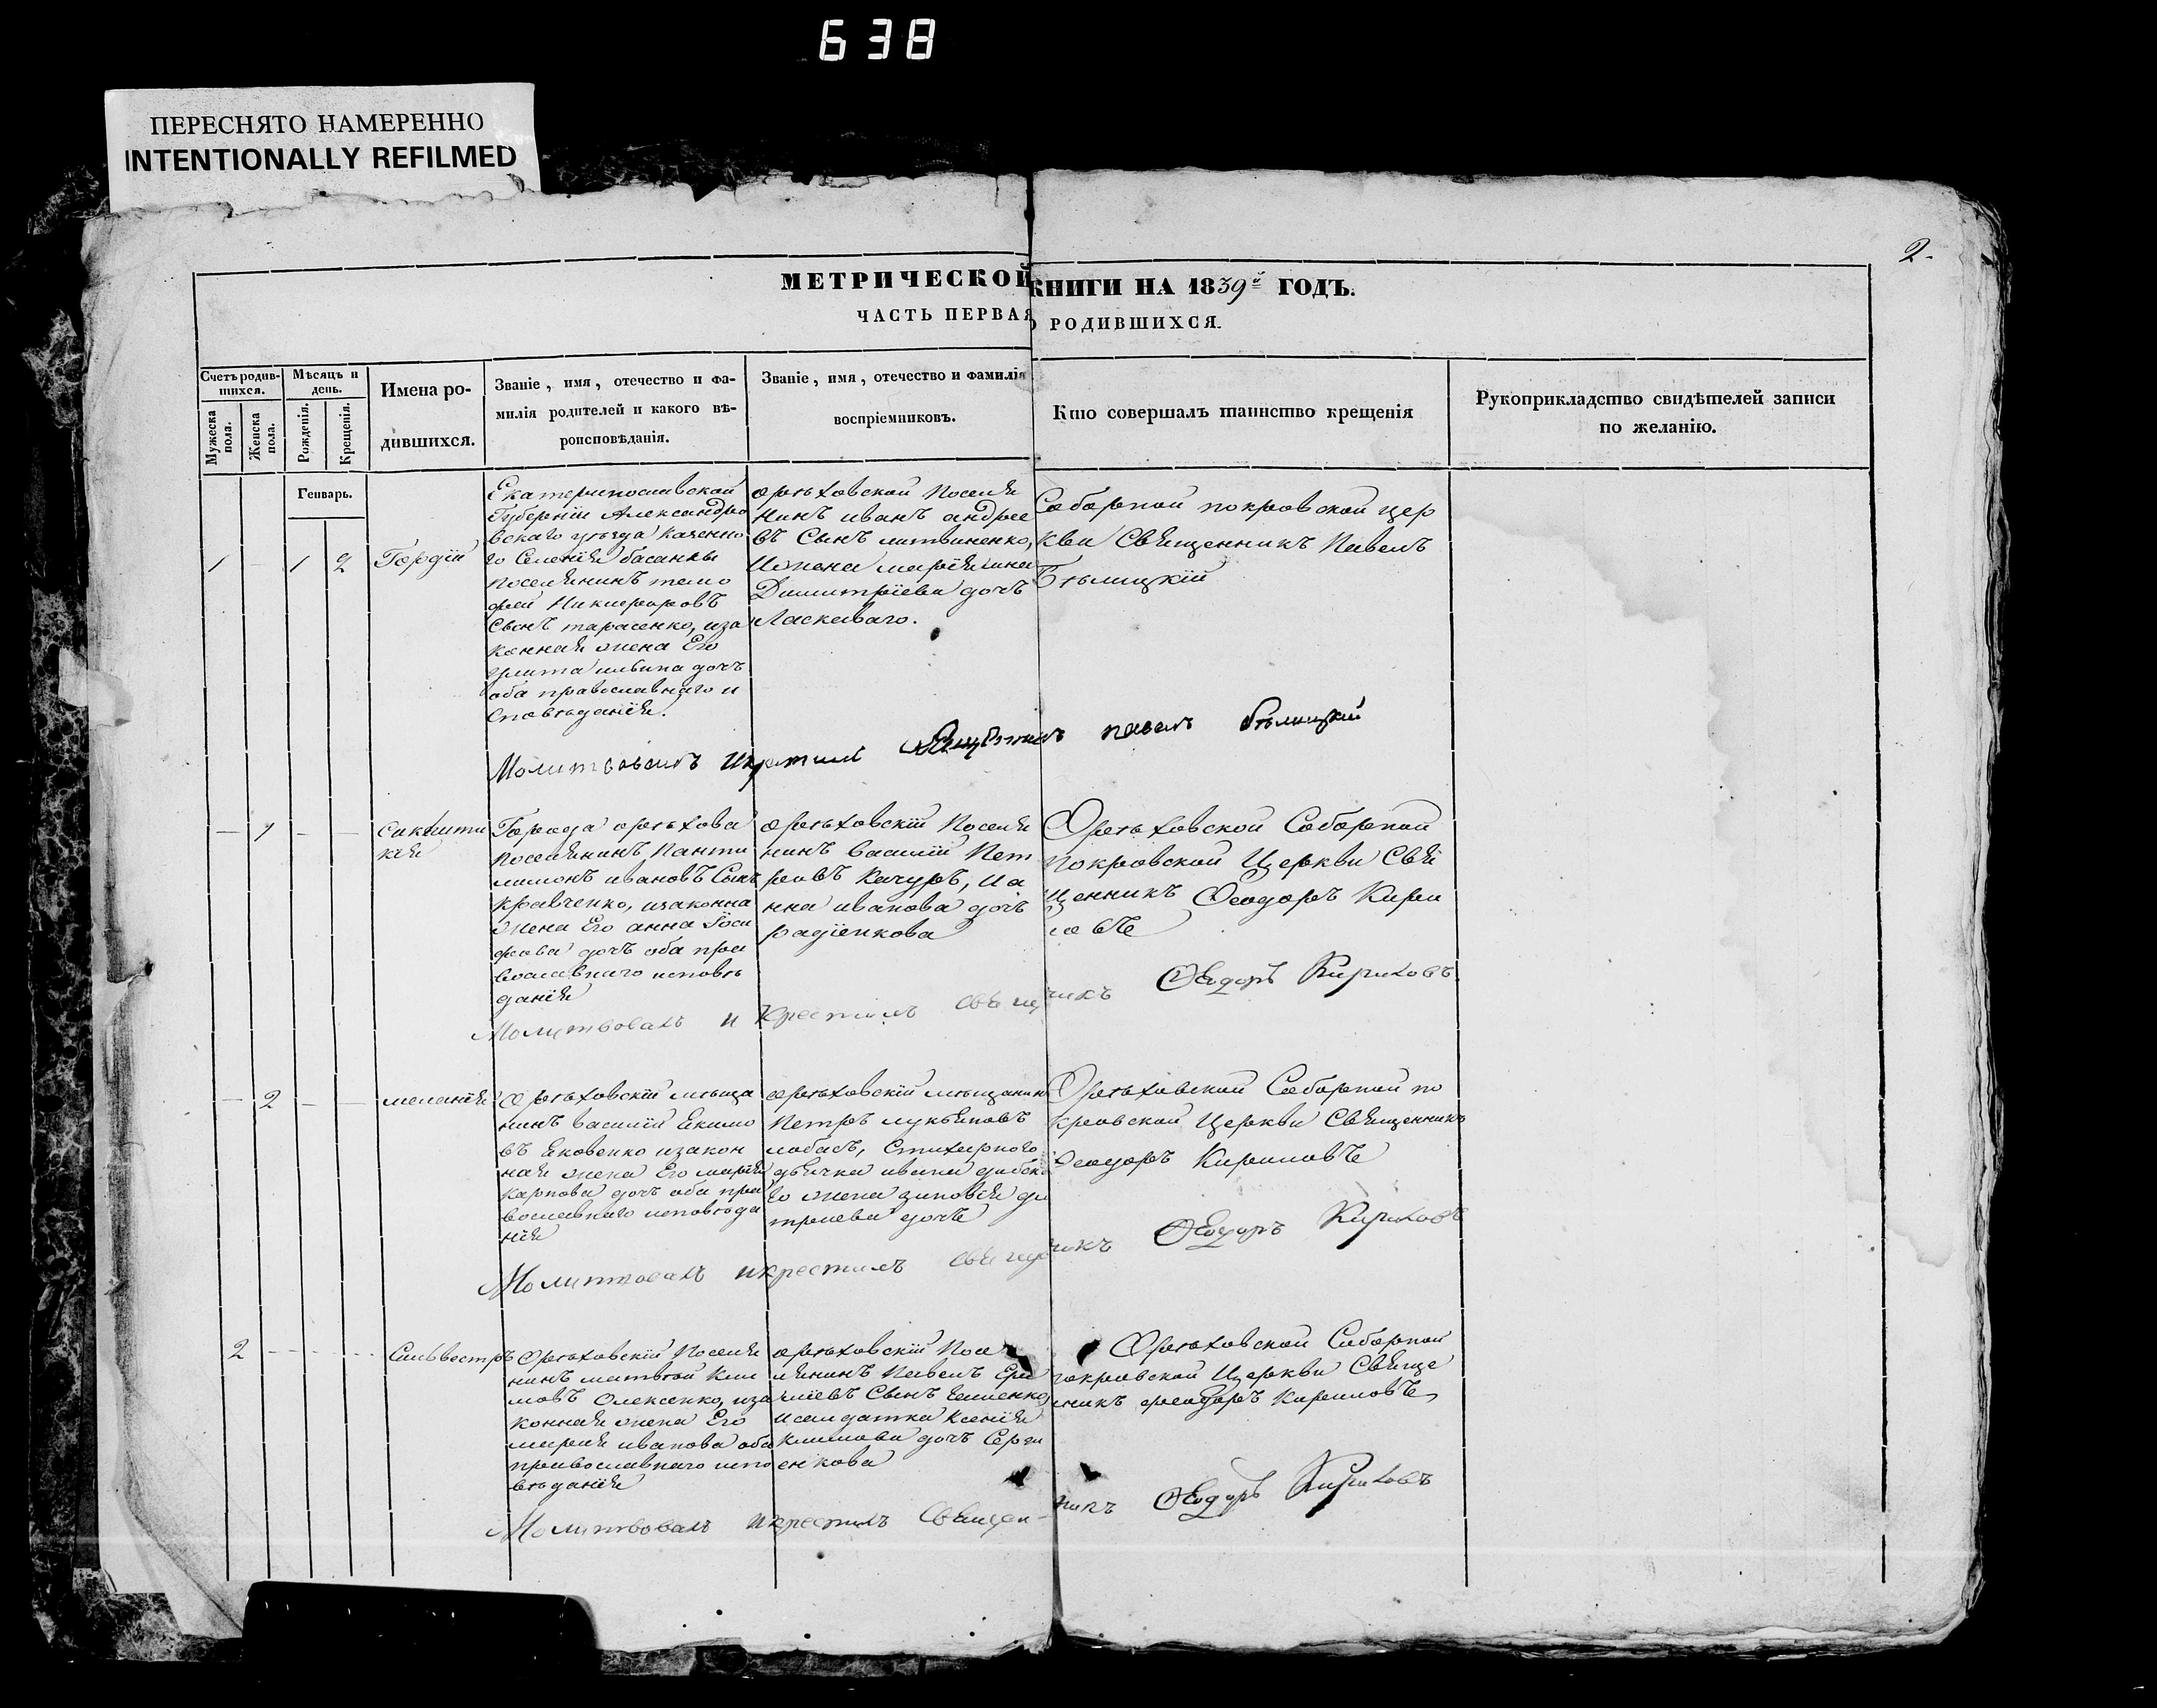 638
ПЕРЕСНЯТО НАМЕРЕННО
INTENTIONALLY REFILMED
2.
МЕТРИЧЕСКОЙ КНИГИ НА 1839й ГОДЪ.
ЧАСТЬ ПЕРВАЯ О РОДИВШИХСЯ.
Счетъ родив-
шихся.
Мужеска
пола.
Женска
пола.
Мѣсяцъ и
день.
Рожденія.
Крещенія.
Имена ро-
дившихся.
Званіе, имя, отечество и фа-
милія родителей и какого вѣ-
роисповѣданія.
Званіе, имя, отечество и фамилія
воспріемниковъ.
Кто совершалъ таинство крещенія
Рукоприкладство свидѣтелей записи
по желанію.
Генварь.
1 - 1 2
Гордій
Екатеринославской
Губерніи Александро
вскаго уѣзда казенно
го Селенія басанки
поселянинъ тимо
фей Никифоровъ
Сынъ тарасенко, иза
конная жена Его
оба православнаго и
сповѣданія.
орѣховской Поселя
нинъ иванъ андрее
въ Сынъ литвиненко,
Димитріева дочь
Ласкаваго.
Соборной покровской цер
кви Священникъ Павелъ
Бѣлицкій
Молитвовалъ и крестилъ Священникъ павелъ бѣлицкій
— 1 — —
Города орѣхова
поселянинъ Панти
лимонъ ивановъ Сынъ
кравченко, изаконна
жена Его анна Іоси
фова дочь оба пра
вославнаго исповѣ
данія
орѣховскій Поселя
нинъ василій Пет
ровъ Качуръ, и а
нна иванова дочь
радіенкова
Орѣховской Соборной
покровской Церкви Свя
щенникъ Феодоръ Кири
ловъ
Молитвовалъ и крестилъ священникъ Феодоръ Кириловъ
— 2 — —
меланія
Орѣховскій мѣща
нинъ василій Екимо
въ Яковенко изакон
ная жена Его марія
карпова дочь оба пра
вославнаго исповѣда
нія
орѣховскій мѣщанинъ
Петръ лукьяновъ
жена зиновія ди
тріева дочь
Орѣховской Соборной по
кровской Церкви Священникъ
Феодоръ Кириловъ
Молитвовалъ и крестилъ священникъ Феодоръ Кириловъ
2 - - -
Сильвестръ
Орѣховскій Поселя
нинъ матвѣй Кли
мовъ Олексенко, иза
конная жена Его
марія иванова оба
православнаго испо
вѣданія
орѣховскій Посе
лянинъ Павелъ
исолдатка ксенія
климова дочь Серги
енкова
Орѣховской Соборной
покровской Церкви Священ
никъ феодоръ Кириловъ
Молитвовалъ и крестилъ Священ-никъ Феодоръ Кириловъ